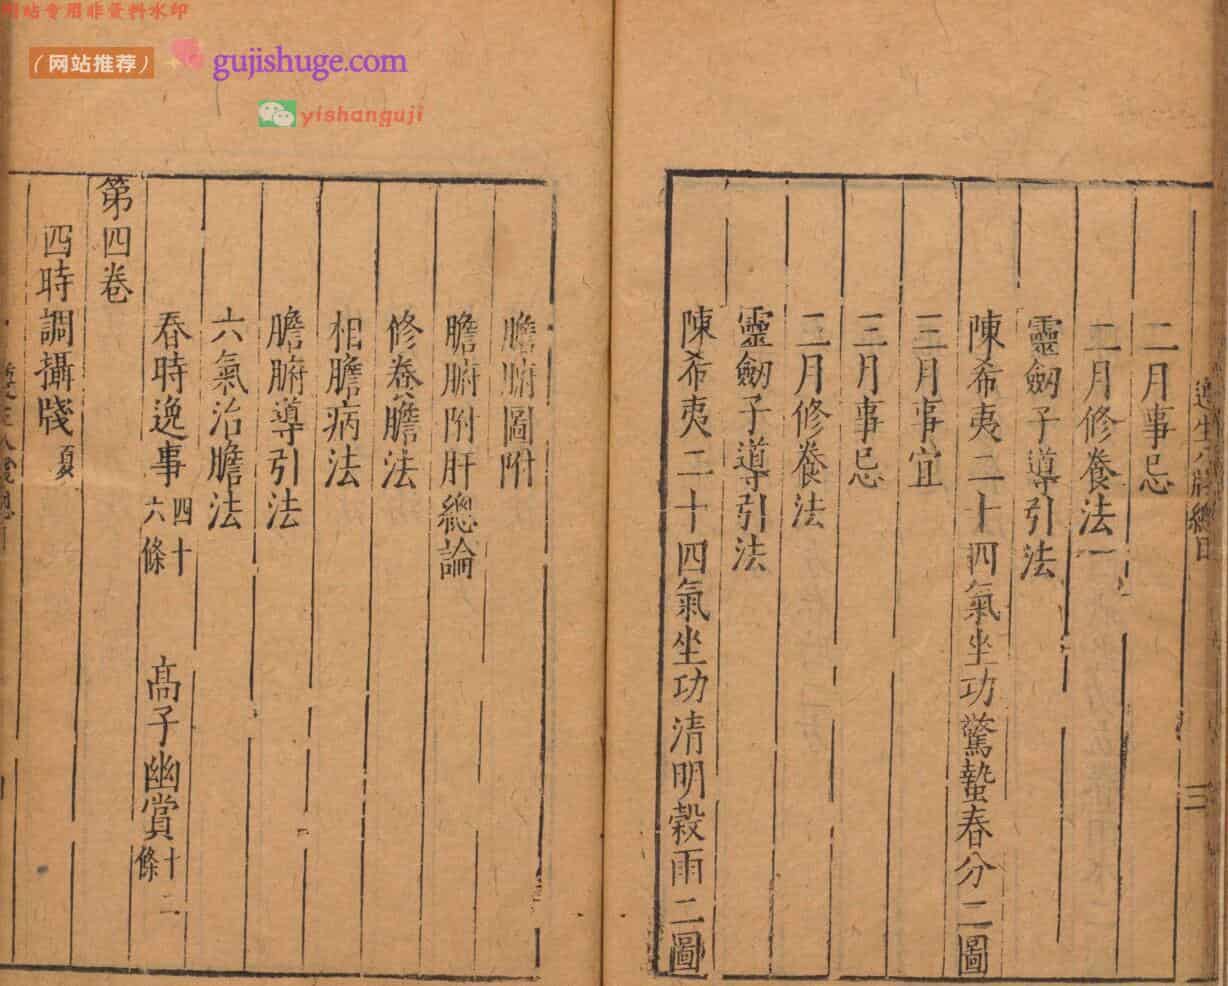 网站专用非资料水印
（网站推荐）
gujishuge.com
yishanguji
遵生八牋總目 三
二月事忌
二月修養法
靈劒子導引法
陳希夷二十四氣坐功驚蟄春分二圖
三月事宜
三月事忌
三月修養法
靈劒子導引法
陳希夷二十四氣坐功清明穀雨二圖
膽腑圖附
膽腑附肝總論
修養膽法
相膽病法
膽腑導引法
六氣治膽法
春時逸事四十六條 高子幽賞十二條
第四卷
四時調攝牋夏